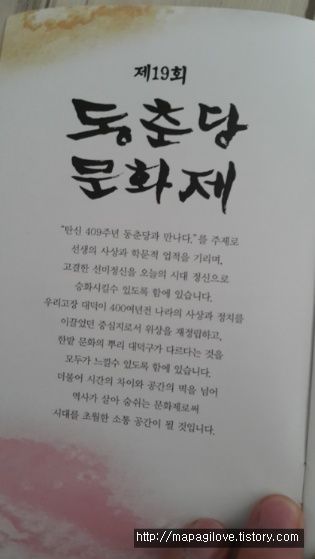 제19회
동춘당
문화제
"탄신 409주년 동춘당과 만나다."를 주제로
선생의 사상과 학문적 업적을 기리며,
고결한 선비정신을 오늘의 시대 정신으로
승화시킬수 있도록 함에 있습니다.
우리고장 대덕이 400여년전 나라의 사상과 정치를
이끌었던 중심지로서 위상을 재정립하고,
한밭 문화의 뿌리 대덕구가 다르다는 것을
모두가 느낄수 있도록 함에 있습니다.
더불어 시간의 차이와 공간의 벽을 넘어
역사가 살아 숨쉬는 문화제로써
시대를 초월한 소통 공간이 될 것입니다.
http://mapagilove.tistory.com